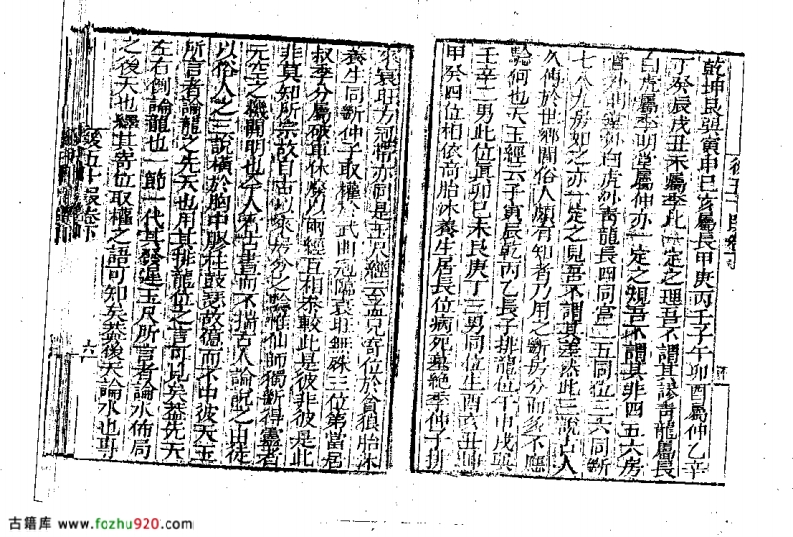 乾坤艮巽寅申巳亥屬長甲庚丙壬子午卯酉屬仲乙辛
丁癸辰戌丑未屬季此一定之理吾不謂其謬青龍屬長
白虎屬季明堂屬仲亦一定之規吾不謂其非四五六房
白虎外青龍長四同當二五同位三六同斷
七八九房如之亦一定之見吾不謂其差然此三說古人
久傳於世鄉閭俗人頗有知者乃用之斷房分而多不應
驗何也天玉經云子寅辰乾丙乙長子排龍位午申戌巽
壬辛二男此位眞卯巳未艮庚丁三男同位生酉亥丑坤
甲癸四位相依苛胎沐養生居長位病死墓絕季仲子排
來衰旺方冠帶亦同是玉尺經云
養生同斷仲子取權於武曲冠臨衰旺無殊三位第當居
叔季分屬破軍休廢以兩經互相叅較此是彼非彼是此
非莫知所宗故自
元空之機開明也今人第古書而不揣古人論說之由徒
以俗人之三說橫於胸中膠柱鼓瑟故應而不中彼天玉
所言者論龍之先天也用其排龍位之言可見矣葢先天
左右倒論龍也一節一代其發遲玉尺所言者論水佈局
之後天也繹其寄位取權之語可知矣葢後天論水也專
六
古籍库 www.fozhu920.com